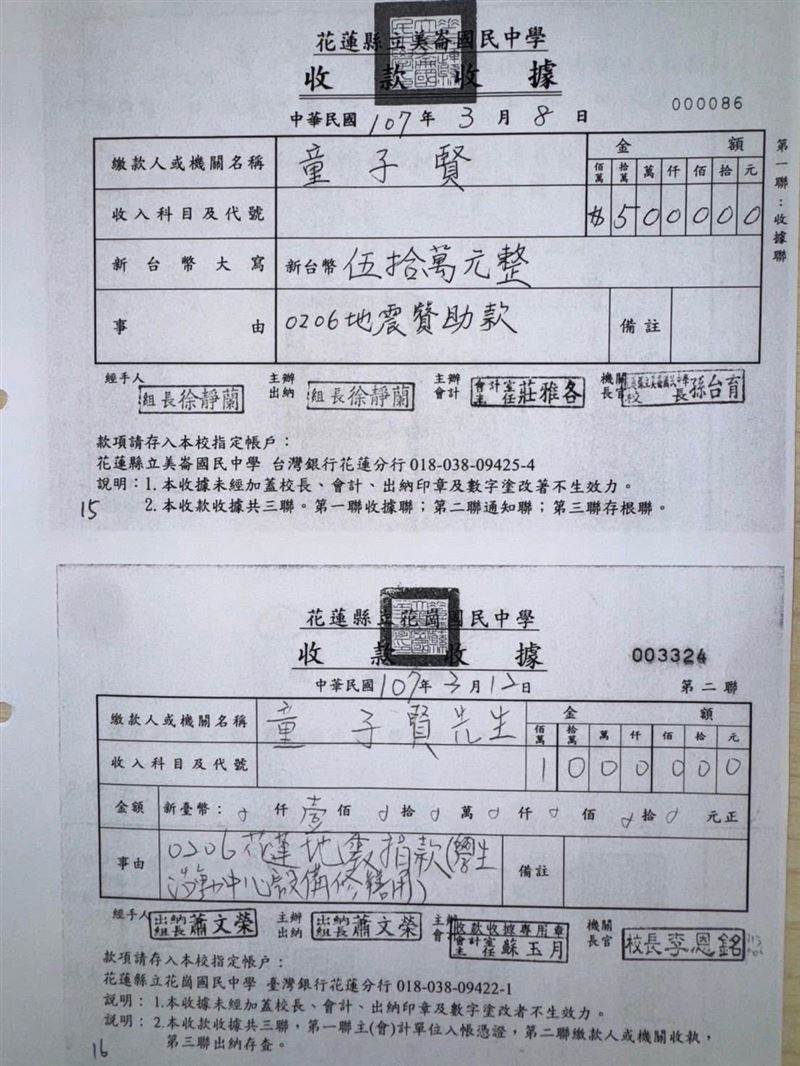 花蓮縣立美崙國民中學
收款收據
000086
中華民國 107 年 3 月 8 日
第一聯：收據聯
繳款人或機關名稱 童子賢 金額
佰萬 拾萬 萬 仟 佰 拾 元
收入科目及代號 $500000
新台幣大寫 新台幣 伍拾萬元整
事由 0206地震贊助款 備註
經手人 組長徐靜蘭 主辦出納 組長徐靜蘭 主辦會計 會計室主任莊雅各 機關長官 校長孫台育
款項請存入本校指定帳戶：
花蓮縣立美崙國民中學 台灣銀行花蓮分行 018-038-09425-4
說明：1.本收據未經加蓋校長、會計、出納印章及數字塗改著不生效力。
2.本收款收據共三聯。第一聯收據聯；第二聯通知聯；第三聯存根聯。
15
花蓮縣立花崗國民中學
收款收據
003324
中華民國 107年 3月 12日 第二聯
繳款人或機關名稱 童子賢先生 金額
佰萬 拾萬 萬 仟 佰 拾 元
收入科目及代號 1000000
金額 新臺幣： 0 仟 壹 佰 0 拾 0 萬 0 仟 0 佰 0 拾 0 元正
事由 0206花蓮地震捐款(學生
活動中心設備修繕用) 備註
經手人 出納組長蕭文榮 主辦出納 出納組長蕭文榮 主辦會計 收款收據專用章 會計室主任蘇玉月 機關長官 校長李恩銘
款項請存入本校指定帳戶：
花蓮縣立花崗國民中學 臺灣銀行花蓮分行 018-038-09422-1
說明： 1.本收據未經加蓋校長、會計、出納印章及數字塗改者不生效力。
說明： 2.本收款收據共三聯，第一聯主(會)計單位入帳憑證，第二聯繳款人或機關收執，
第三聯出納存查。
16